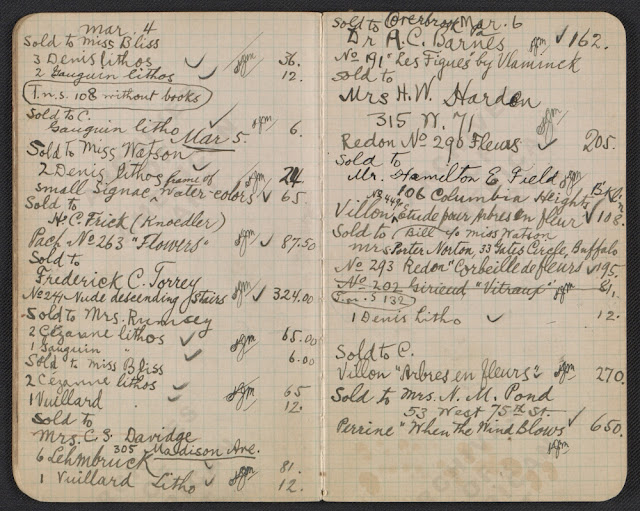 Mar. 4
Sold to Miss Bliss
3 Denis lithos 36.
2 Gauguin lithos 12.
T.n.s. 108 without books
Sold to C.
Gauguin litho 6.
Mar 5.
Sold to Miss Watson
2 Denis lithos 24
small Signac frame of Water-colors 65
Sold to
H.C. Frick (Knoedler)
Pach No 263 "Flowers" 87.50
Sold to
Frederick C. Torrey
No 241 Nude descending Stairs 324.00
Sold to Mrs. Rumsey
2 Cézanne lithos 65.00
1 Gauguin " 6.00
Sold to Miss Bliss
2 Cézanne lithos 65
1 Vuillard " 12.
Sold to
Mrs. C. S. Davidge
305 Madison Ave.
6 Lehmbruck 81.
1 Vuillard Litho 12.
Sold to Overbrook Mar. 6
Dr A.C. Barnes 162.
No 191 "Les Figues" by Vlaminck
Sold to
Mrs H.W. Harden
315 W. 71
Redon No 290 Fleurs 205.
Sold to
Mr. Hamilton E. Field
106 Columbia Heights Bkln
No 449
Villon, Étude pour Arbres en fleur 108.
Sold to Bill c/o Miss Watson
Mrs Porter Norton, 33 Gates Circle, Buffalo
No 293 Redon "Corbeille de fleurs" 195.
No 202 Girieud "Vitraux" 81.
T.n.s 132
1 Denis Litho 12.
Sold to C.
Villon "Arbres en fleurs" 270.
Sold to Mrs. N. M. Pond
53 West 75th St.
Perrine "When the Wind Blows" 650.